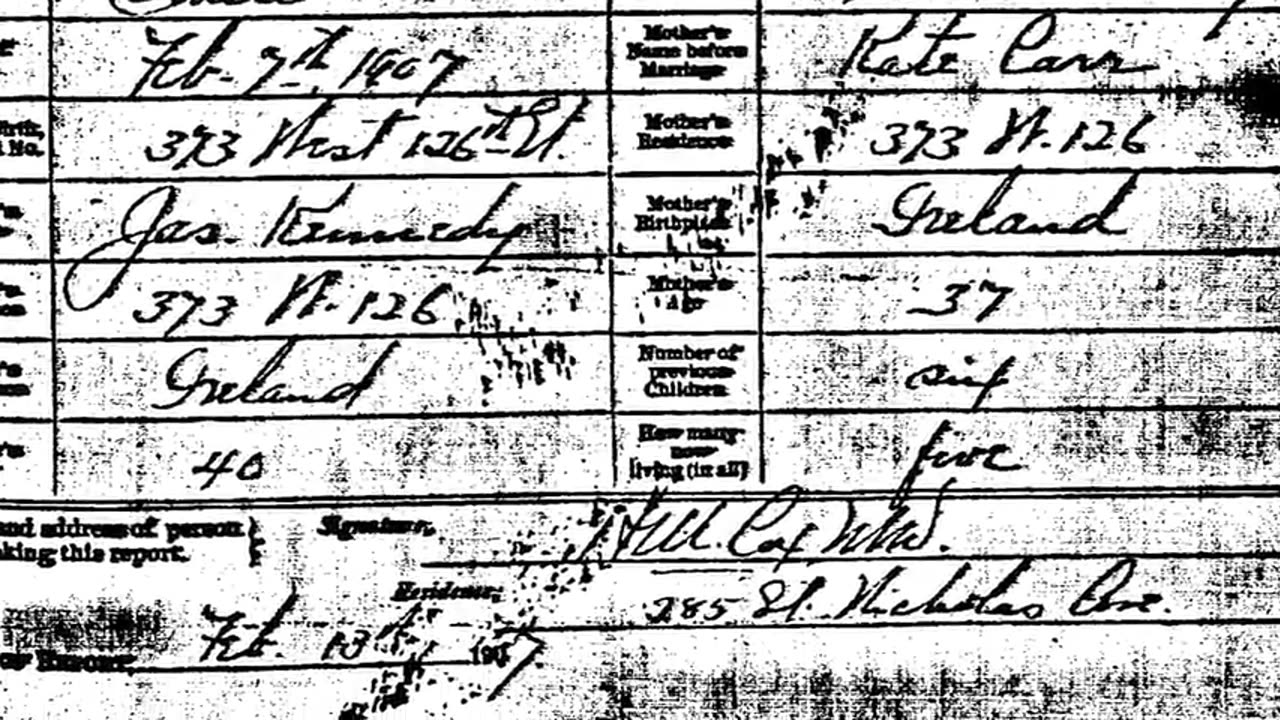 Feb. 7th, 1907 Mother's Name before Marriage Kate Carr
373 West 126th St. Mother's Residence 373 W. 126
Jas. Kennedy Mother's Birthplace Ireland
373 W. 126 Mother's Age 37
Ireland Number of previous Children six
40 How many now living (in all) five
and address of person Signature, Cox M.D.
king this report.
Residence, 285 St. Nicholas Ave.
Feb. 13th 1907
OF REPORT,